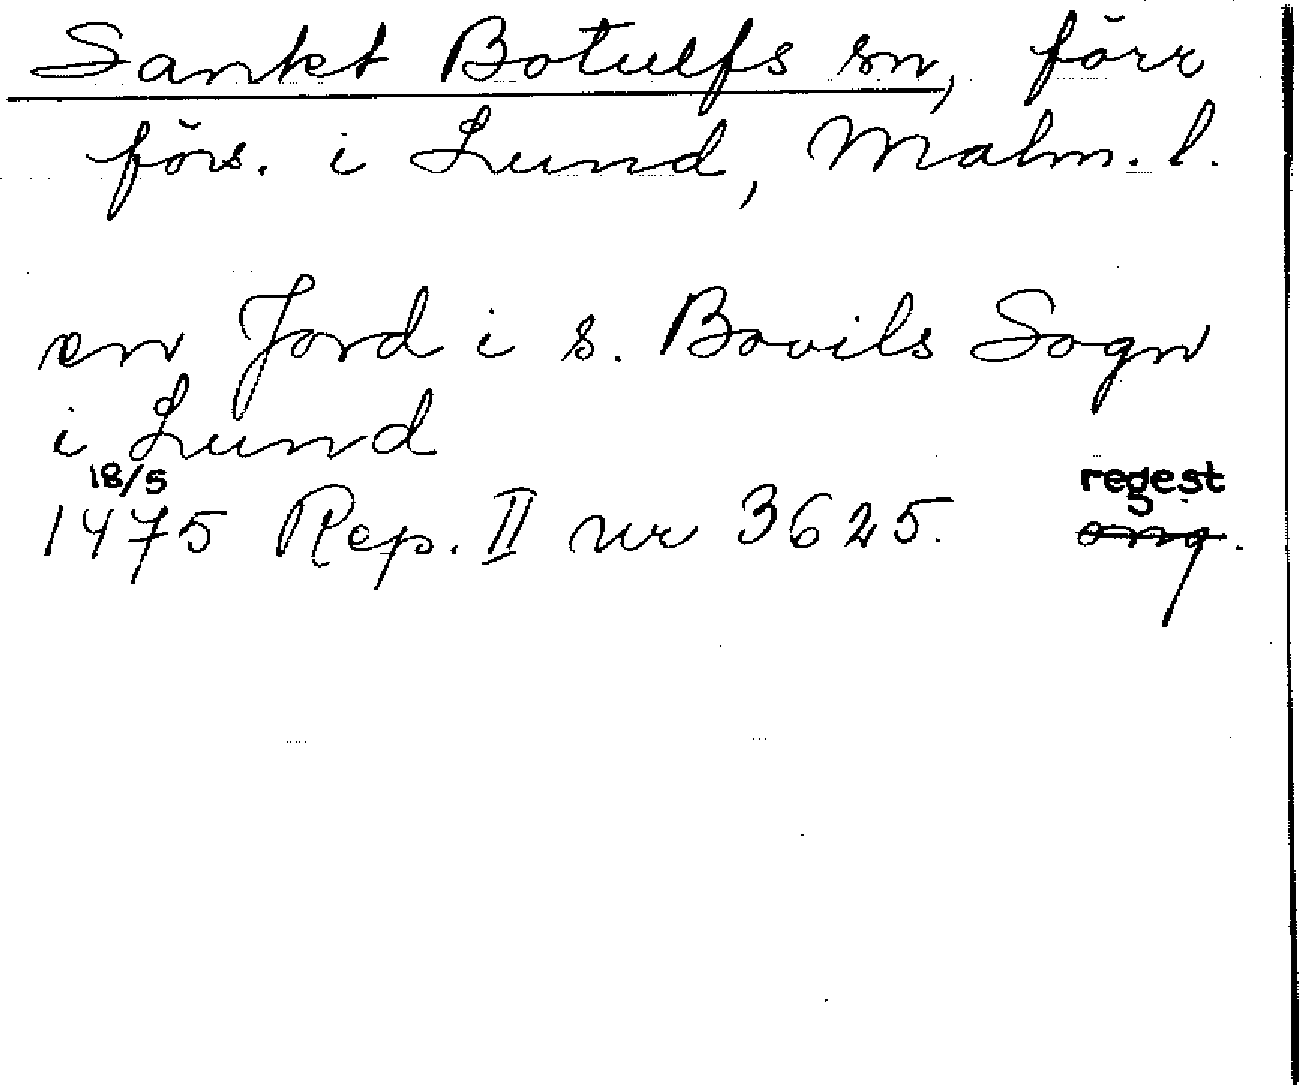 Sankt Botulfs sn, förr
förs. i Lund, Malm. l.
en Jord i s. Bovils Sogn
i Lund
18/5 regest
1475 Rep. II nr 3625. org.